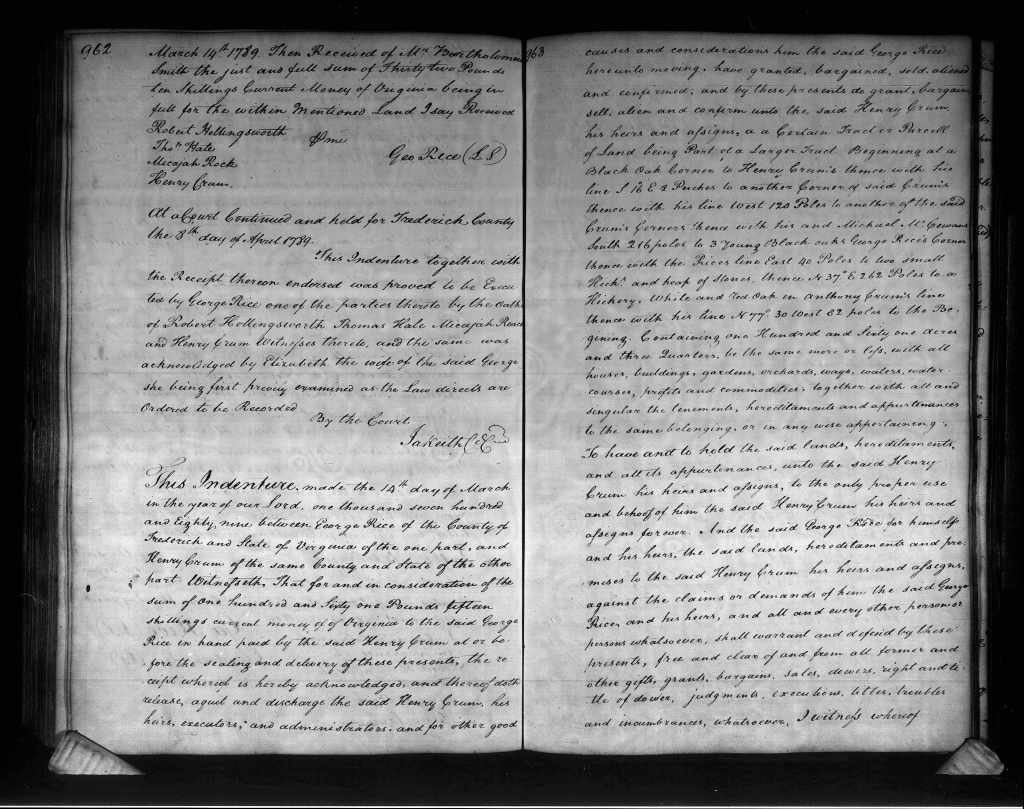 962
March 14th 1789. Then Received of Mr. Bartholomew
Smith the just and full sum of Thirty two Pounds
ten Shillings Current Money of Virginia being in
full for the within Mentioned Land I say Received
Robert Hollingsworth
Thos. Hale
Micajah Rock
Henry Crum.
Geo Rice (L S)
At a Court Continued and held for Frederick County
the 8th day of April 1789.
This Indenture together with
the Receipt thereon endorsed was proved to be Execu
ted by George Rice one of the parties thereto by the Oaths
of Robert Hollingsworth Thomas Hale Micajah
and Henry Crum Witnesses thereto, and the same was
acknowledged by Elizabeth the wife of the said George
she being first privily examined as the Law directs are
Ordered to be Recorded
By the Court
Ja Keith
This Indenture, made the 14th day of March
in the year of our Lord, one thousand seven hundred
and Eighty, nine between George Rice of the County of
Frederick and State of Virginia of the one part, and
Henry Crum of the same County and State of the other
part Witnesseth, That for and in consideration of the
sum of One hundred and Sixty one Pounds fifteen
shillings current money of of Virginia to the said George
Rice in hand paid by the said Henry Crum at or be
fore the sealing and delivery of these presents, the re
ceipt whereof is hereby acknowledged, and thereof doth
release, aquit and discharge the said Henry Crum, his
heirs, executors, and administrators. and for other good
963
causes and considerations him the said George Rice
hereunto moving, have granted, bargained, sold, aliened
and confirmed, and by these presents do grant, bargain
sell, alien and confirm unto the said Henry Crum
his heirs and assigns, a a Certain Tract or Parcell
of Land being Part of a Larger Tract Beginning at a
Black Oak Corner to Henry Crum's thence with his
line S 16 E 2 Pirches to another Corner of said Crum's
thence with his line West 120 Poles to another of the said
Crum's Corners thence with his and Michael Mc
South 216 poles to 3 Young Black oaks George Rice's Corner
thence with the Rices line East 40 Poles to two small
Hicks. and heap of Stones, thence N 37° E 262 Poles to a
Hickory, White and Red Oak in anthony Crum's line
thence with his line N 77° 30 West 62 poles to the Be,
gining. Containing one Hundred and Sixty one acres
and three Quarters, be the same more or less, with all
houses, buildings, gardens, orchards, ways, waters, water
courses, profits and commodities, together with all and
singular the tenements, hereditaments and appurtenances
to the same belonging, or in any wise appertaining.
To have and to hold the said lands, hereditaments,
and all its appurtenances, unto the said Henry
Crum his heirs and assigns, to the only proper use
and behoof of him the said Henry Crum his heirs and
assigns forever. And the said George Rice for himself
and his heirs, the said lands, hereditaments and pre
mises to the said Henry Crum his heirs and assigns,
against the claims or demands of him the said George
Rice, and his heirs, and all and every other person or
persons whatsoever, shall warrant and defend by these
presents, free and clear of and from all former and
other gifts, grants, bargains, sales, dowers, right and ti
tle of dower, judgments, executions, titles, troubles
and incumbrances, whatsoever, I witness whereof